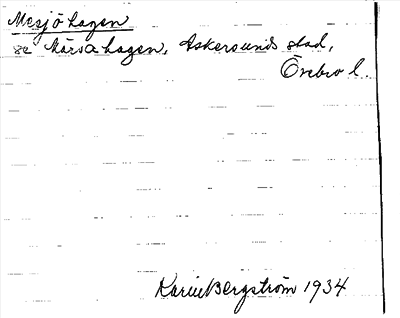 Mesjöhagen
se Norra hagen, Askersunds stad,
Örebro l.
Karin Bergström 1934